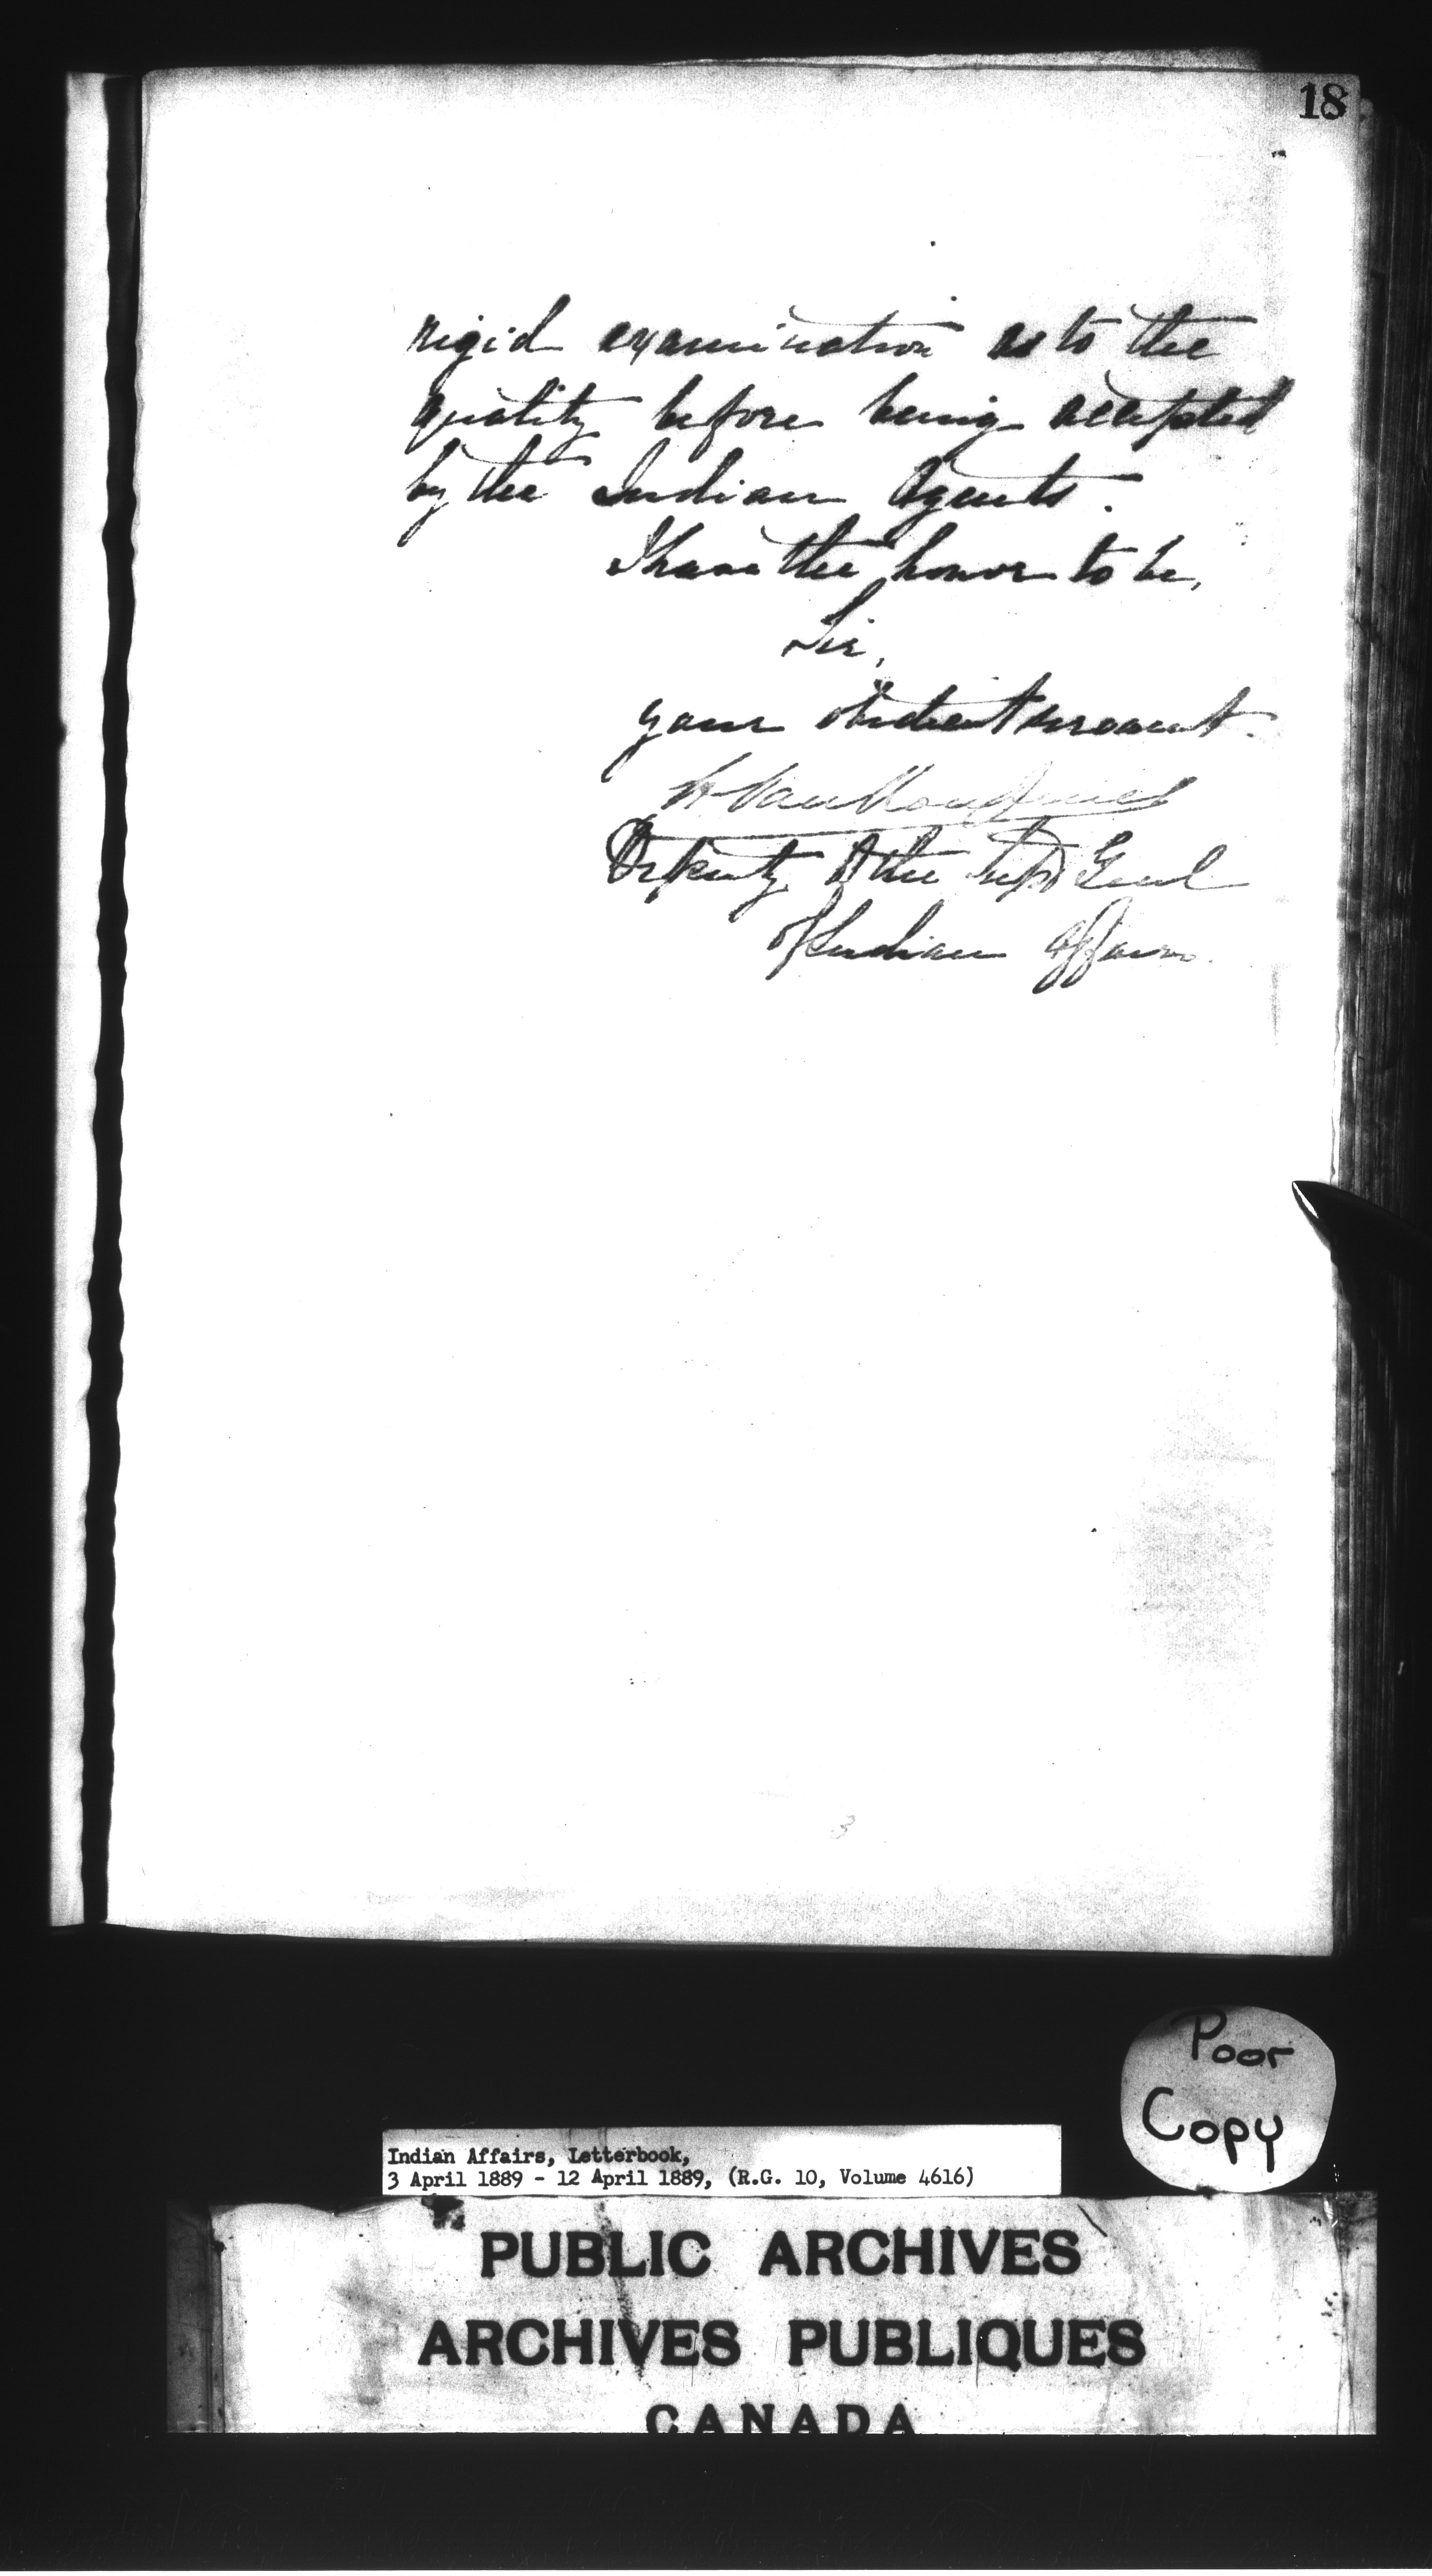 18
rigid examination as to the
quality before being accepted
by the Indian Agents.
I have the honor to be,
Sir,
your obedient servant.
L. Vankoughnet
Deputy of the Supt Genl
of Indian Affairs.
3
Poor
Copy
Indian Affairs, Letterbook,
3 April 1889 - 12 April 1889, (R.G. 10, Volume 4616)
PUBLIC ARCHIVES
ARCHIVES PUBLIQUES
CANADA